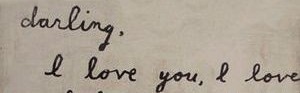 darling,
I love you, I love